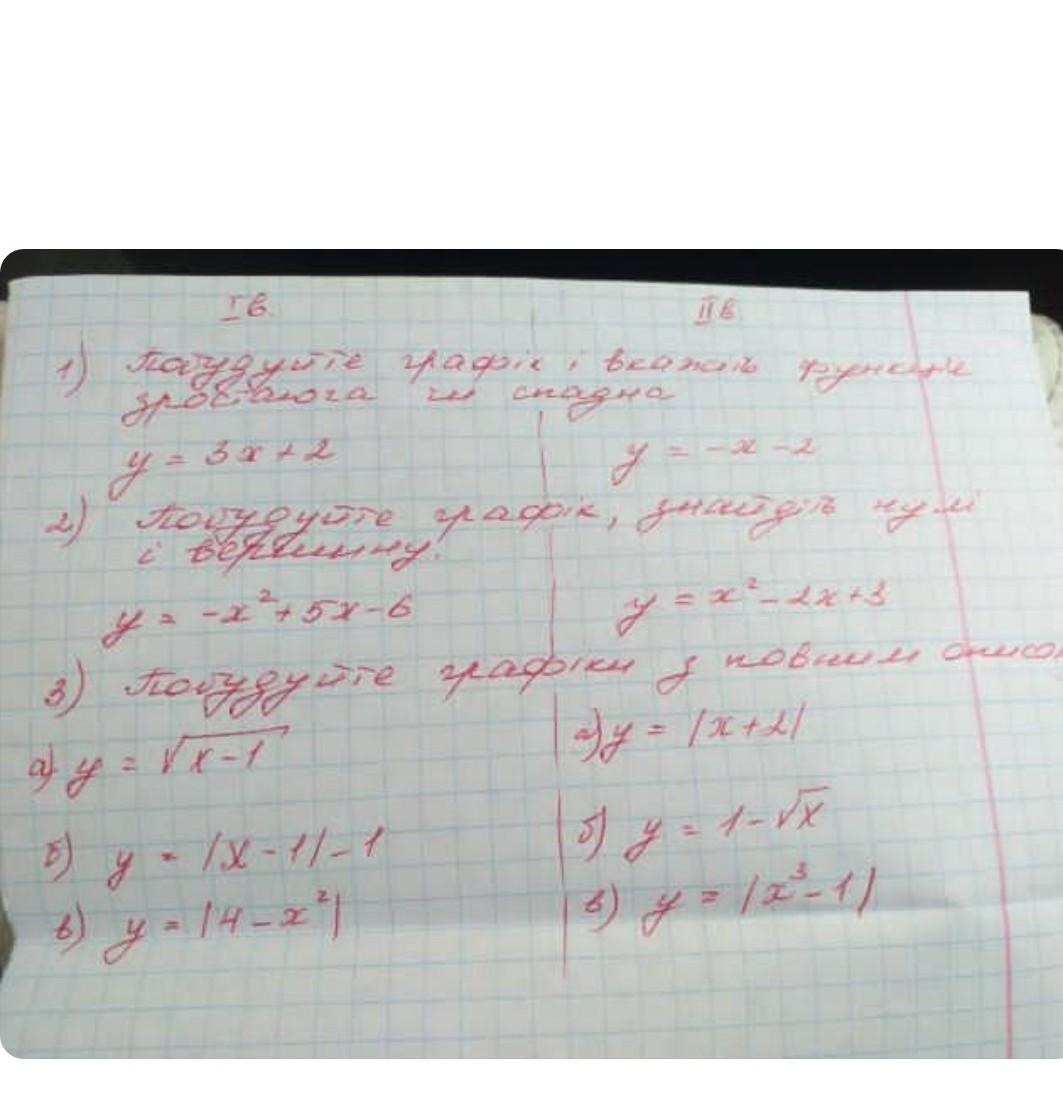 I в. II в
1) Побудуйте графік і вкажіть функція
зростаюча чи спадна
y = 3x + 2 y = -x - 2
2) Побудуйте графік, знайдіть нулі
і вершину.
y = -x² + 5x - 6 y = x² - 2x + 3
3) Побудуйте графіки з повним описо
а) y = √(x - 1) а) y = |x + 2|
б) y = |x - 1| - 1 б) y = 1 - √x
в) y = |4 - x²| в) y = |x³ - 1|